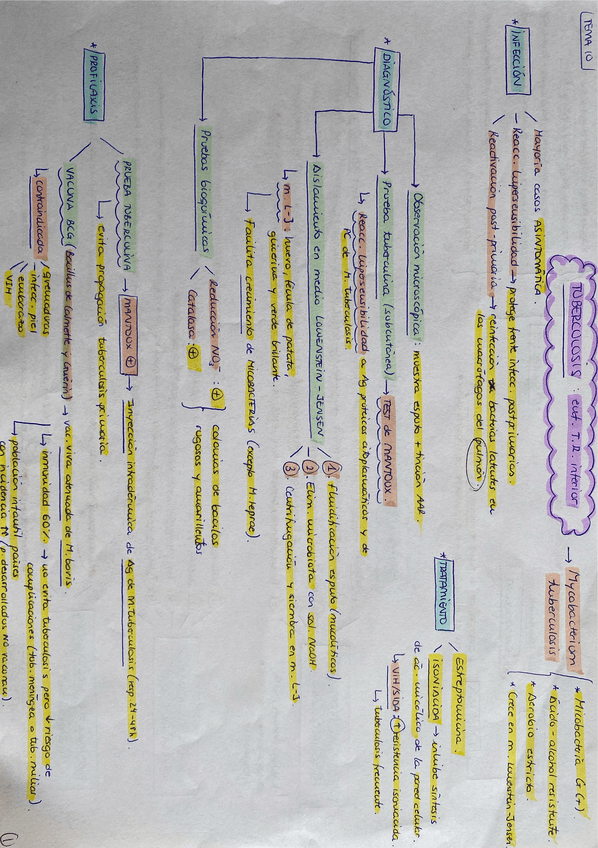 TEMA 10
TUBERCULOSIS : enf. T.R. inferior
→ Mycobacterium tuberculosis
* Micobacteria G (+).
* Ácido-alcohol resistente.
* Aerobia estricta
* Crece en m. Lowenstein Jensen.
* INFECCIÓN
Mayoría casos ASINTOMÁTICA.
Reacc. hipersensibilidad → protege frente infecc. postprimarias.
Reactivación post-primaria → reinfección de bacterias latentes en
los macrófagos del pulmón
* DIAGNÓSTICO
Observación microscópica: muestra esputo + tinción AAR.
Prueba tuberculina (subcutánea) → TEST de MANTOUX.
↳ Reacc. hipersensibilidad a Ag proteicos citoplasmáticos y de
PC de M. tuberculosis.
Aislamiento en medio LOWENSTEIN-JENSEN
1. Fluidificación esputo (mucolíticos).
2. Elim microbiota con sol. NaOH
3. Centrifugación y siembra en m. L-J.
↳ m. L-J: huevo, fécula de patata,
glicerina y verde brillante.
↳ Facilita crecimiento de MICOBACTERIAS (excepto M. leprae).
Pruebas bioquímicas
Reducción NO₃⁻: +
Catalasa: +
colonias de bacilos
rugosas y amarillentas
* TRATAMIENTO
Estreptomicina.
ISONIACIDA → inhibe síntesis
de ác. micólico de la pared celular.
↳ VIH/SIDA: ↑ resistencia isoniacida.
↳ Tuberculosis frecuente.
* PROFILAXIS
PRUEBA TUBERCULINA → MANTOUX + → Inyección intradérmica de Ag de M. tuberculosis (resp 24-48h)
↳ evita propagación tuberculosis primaria.
VACUNA BCG (Bacillus de Calmette y Guérin) → vac. viva atenuada de M. bovis.
↳ contraindicada
gestuadoras
infecc. piel
embarazo
VIH
↳ inmunidad 60% → no evita tuberculosis pero ↓ riesgo de
complicaciones (tub. meníngea o tub miliar).
↳ población infantil países
con incidencia ↑↑ (p. desarrollados NO vacunan).
1